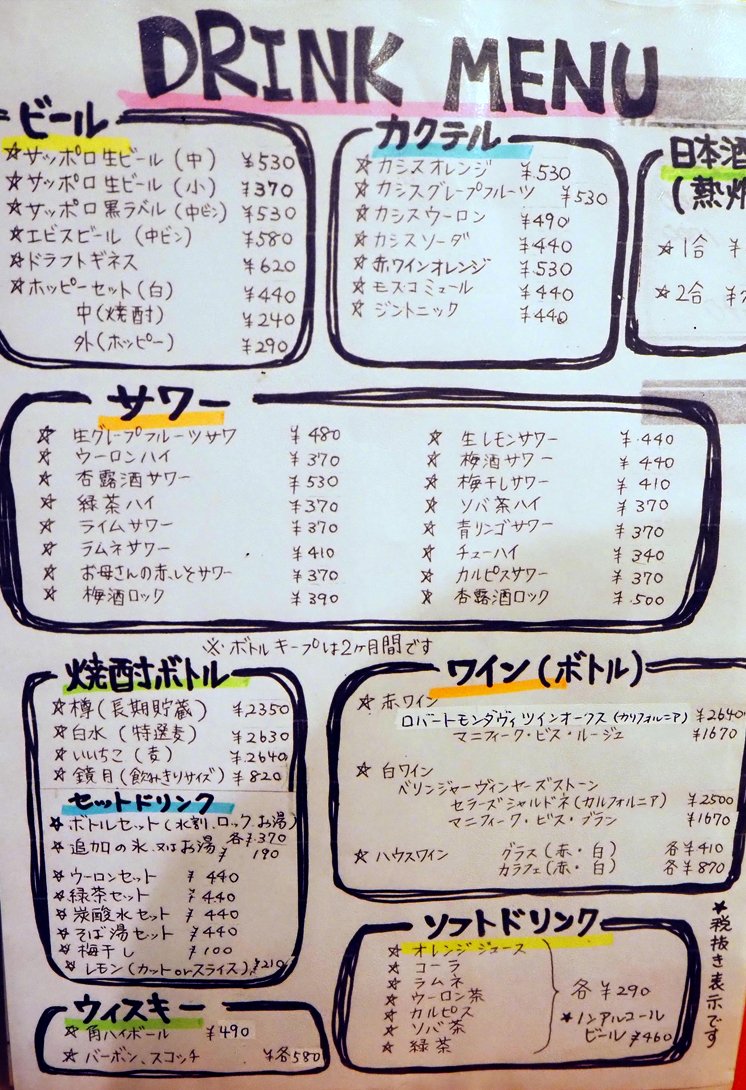 DRINK MENU
ビール
☆サッポロ生ビール(中) ¥530
☆サッポロ生ビール(小) ¥370
☆サッポロ黒ラベル(中ビン) ¥530
☆エビスビール(中ビン) ¥580
☆ドラフトギネス ¥620
☆ホッピーセット(白) ¥440
中(焼酎) ¥240
外(ホッピー) ¥290
カクテル
☆カシスオレンジ ¥530
☆カシスグレープフルーツ ¥530
☆カシスウーロン ¥490
☆カシスソーダ ¥440
☆赤ワインオレンジ ¥530
☆モスコミュール ¥440
☆ジントニック ¥440
日本酒
(熱
☆1合 ¥
☆2合 ¥
サワー
☆生グレープフルーツサワ ¥480
☆ウーロンハイ ¥370
☆杏露酒サワー ¥530
☆緑茶ハイ ¥370
☆ライムサワー ¥370
☆ラムネサワー ¥410
☆お母さんの赤しそサワー ¥370
☆梅酒ロック ¥390
☆生レモンサワー ¥440
☆梅酒サワー ¥440
☆梅干しサワー ¥410
☆ソバ茶ハイ ¥370
☆青リンゴサワー ¥370
☆チューハイ ¥340
☆カルピスサワー ¥370
☆杏露酒ロック ¥500
※ボトルキープは2ヶ月間です
焼酎ボトル
☆樽(長期貯蔵) ¥2350
☆白水(特選麦) ¥2630
☆いいちこ(麦) ¥2640
☆鏡月(飲みきりサイズ) ¥820
セットドリンク
☆ボトルセット(水割、ロック、お湯) 各¥370
☆追加の氷、又はお湯 ¥190
☆ウーロンセット ¥440
☆緑茶セット ¥440
☆炭酸水セット ¥440
☆そば湯セット ¥440
☆梅干し ¥100
☆レモン(カットorスライス) ¥210
ワイン(ボトル)
☆赤ワイン
ロバートモンダヴィツインオークス(カリフォルニア) ¥2640
マニフィーク・ビス・ルージュ ¥1670
☆白ワイン
ベリンジャーヴィンヤーズストーン
セラーズシャルドネ(カルフォルニア) ¥2500
マニフィーク・ビス・ブラン ¥1670
☆ハウスワイン グラス(赤・白) 各¥410
カラフェ(赤・白) 各¥870
ウィスキー
☆角ハイボール ¥490
☆バーボン、スコッチ ¥各580
ソフトドリンク
☆オレンジジュース
☆コーラ
☆ラムネ
☆ウーロン茶
☆カルピス
☆ソバ茶
☆緑茶
各¥290
★ノンアルコール
ビール ¥460
★税抜き表示です